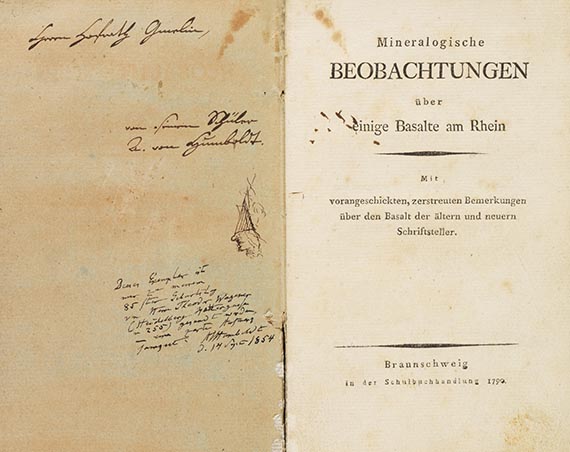 Herrn Hofrath Gmelin,
von seinem Schüler
A. von Humboldt.
Dieses Exemplar ist
mir zu meinem
85 sten Geburtstag
von Herrn Theodor Wagener
(Heidelberg
255) gesandt worden
AvHumboldt
d. 14 Sept 1854
Mineralogische
BEOBACHTUNGEN
über
einige Basalte am Rhein
Mit
vorangeschickten, zerstreuten Bemerkungen
über den Basalt der ältern und neuern
Schriftsteller.
Braunschweig
in der Schulbuchhandlung 1790.